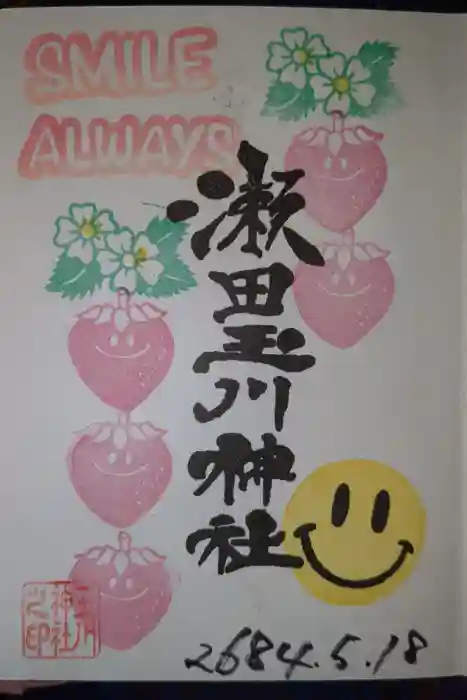 SMILE
ALWAYS
瀬田玉川神社
玉川
神社
之印
2684.5.18